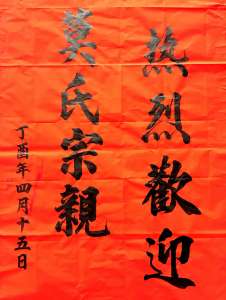 热烈歡迎
莫氏宗親
丁酉年四月十五日